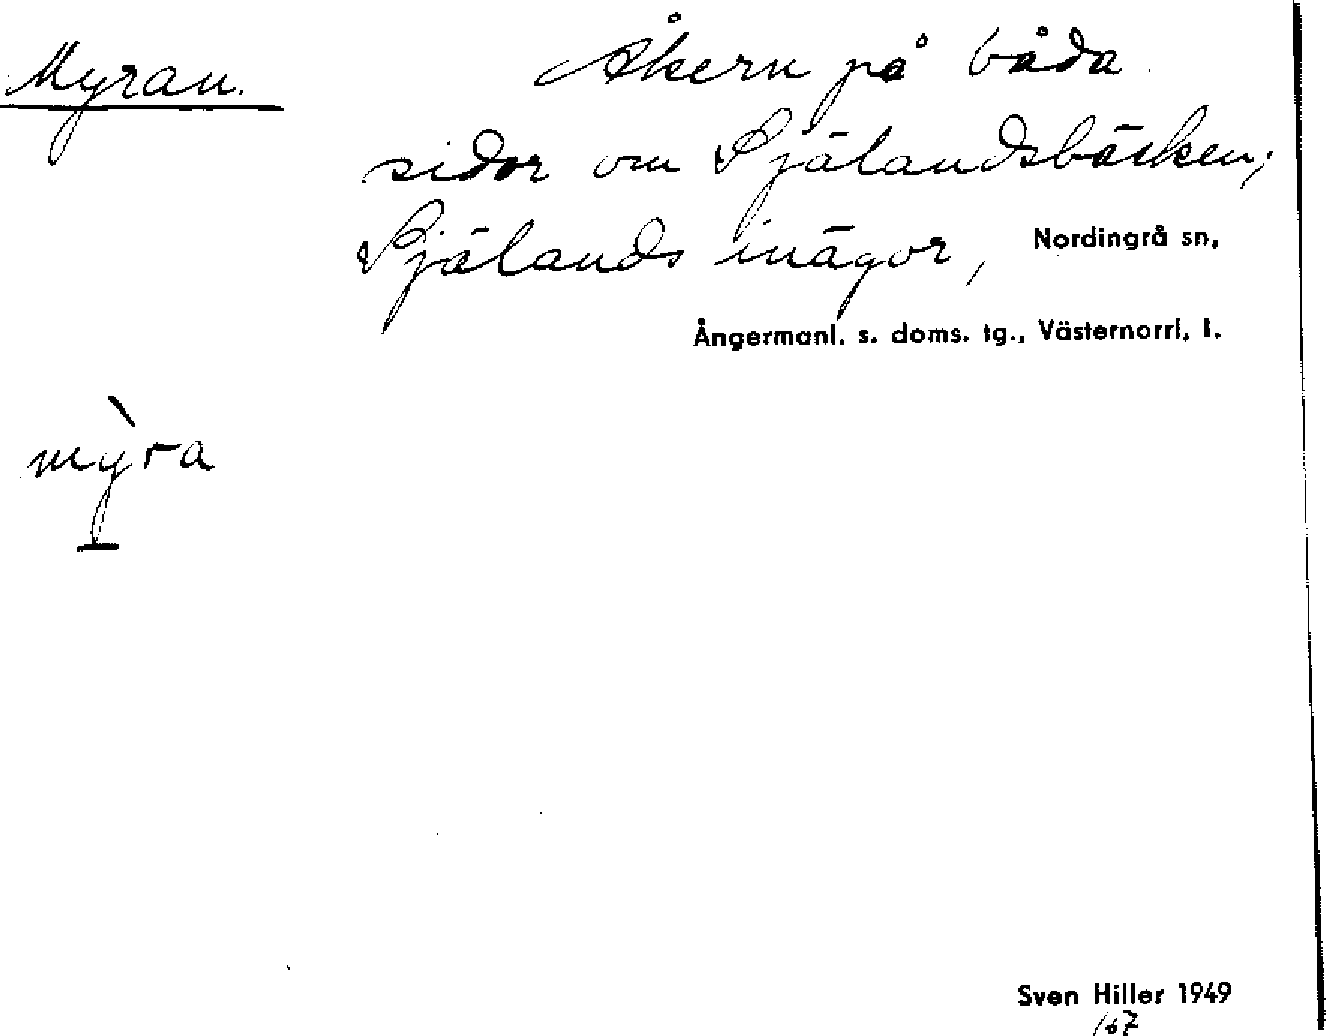 Myran. Åkern på båda
sidor om Själandsbäcken;
Själands inägor, Nordingrå sn,
Ångermanl. s. doms. tg., Västernorrl. l.
myra
Sven Hiller 1949
167